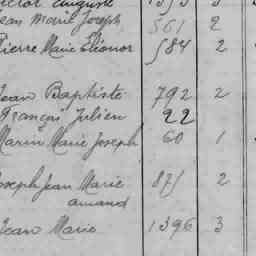 Victor Auguste 1393 3
Jean Marie Joseph 561 2
Pierre Marie Elionor 584 2
Jean Baptiste 792 2
François Julien 22
Marin Marie Joseph 60 1
Joseph Jean Marie 871 2
amand
Jean Marie 1396 3